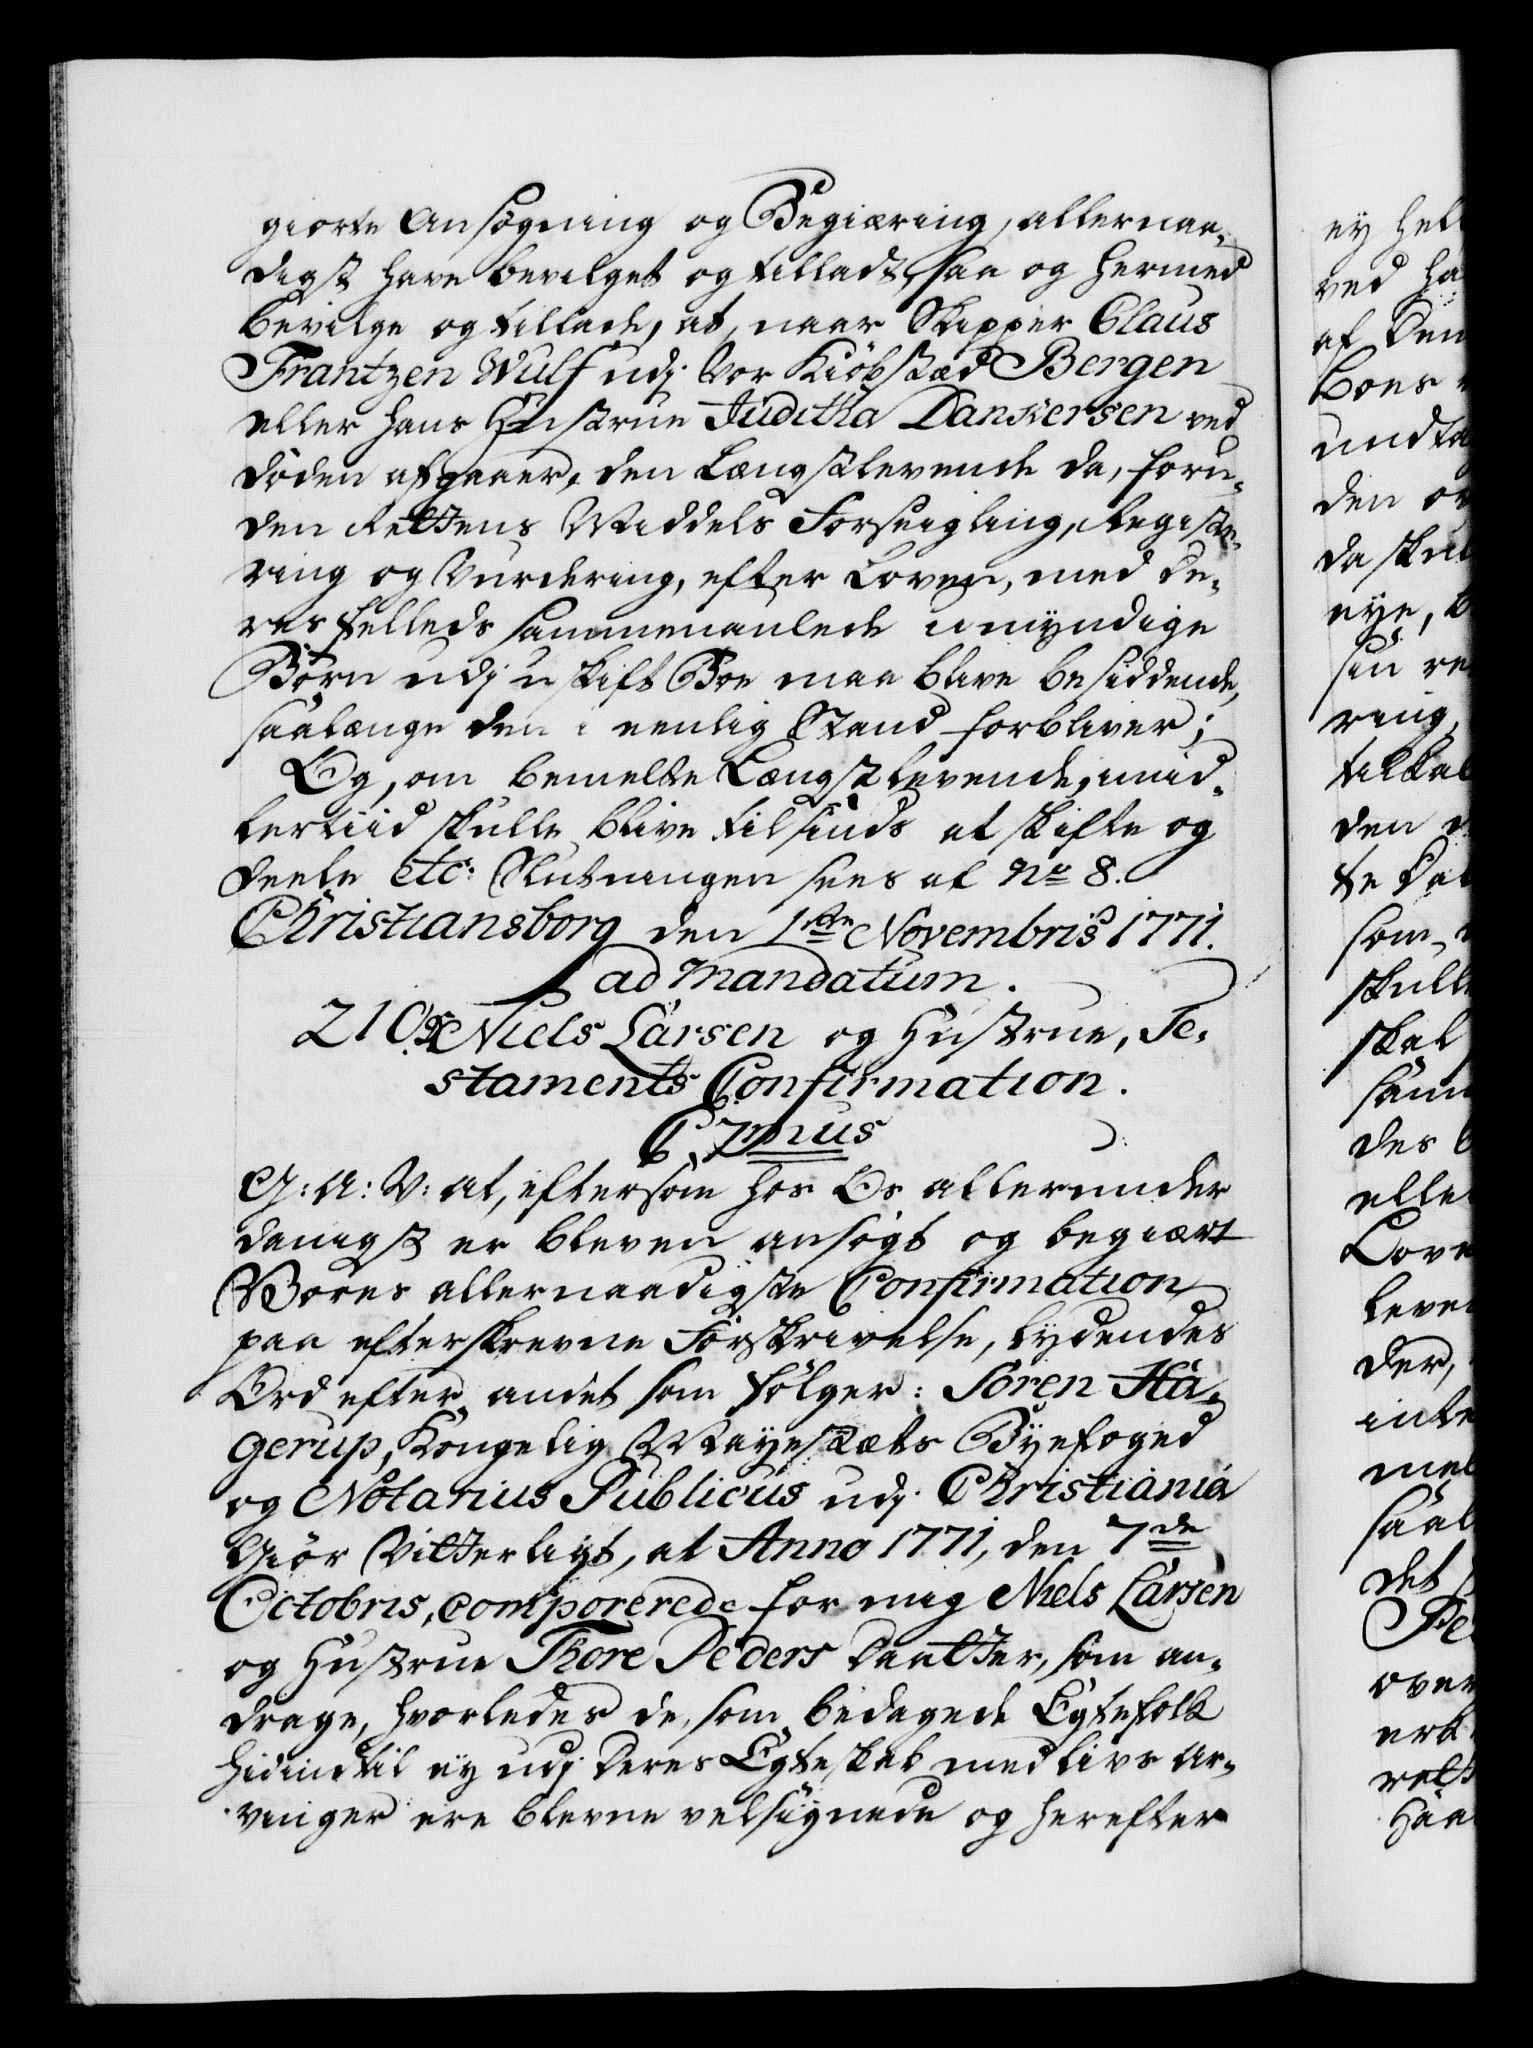 giorte Ansøgning og Begiæring, allernaa-
digst have bevilget og tilladt, saa og hermed
bevilge og tillade, at, naar Skipper Claus
Frantzen Wulf udj Vor Kiöbstæd Bergen
eller hans Hustrue Juditha Dankersen ved
döden afgaaer, den Længstlevende da, foru-
den Rettens Middels Forseigling, Registe-
ring og Vurdering, efter Loven, med de-
res fælleds sammenavlede umyndige
Børn udj uskift Boe maa blive besiddende,
saalænge den i eenlig Stand forbliver;
Og, om bemelte Længstlevende, imid-
lertiid skulle blive tilsinds at skifte og
deele etc: Slutningen sees af No 8.
Christiansborg den 1ste Novembris 1771.
ad mandatum.
210. Niels Larsen og Hustrue, Te-
staments Confirmation.
C. 7mus
G: A: V: at, eftersom hos Os allerunder
danigst er bleven ansøgt og begiært
Vores allernaadigste Confirmation
paa efterskrevne Forskrivelse, lydendes
Ord efter andet som følger: Sören Ha-
gerup, Kongelig Mayestæts Byefoged
og Notarius Publicus udj Christiania
Giör Vitterligt, at Anno 1771, den 7de
Octobris, comporerede for mig Niels Larsen
og Hustrue Thore Peders Daatter, som an-
drage, hvorledes de, som bedagede Egtefolk
hidindtil ey udj deres Egteskab med livs Ar-
vinger ere blevne velsignede og herefter
ey hel
ved ha
af den
Boes
undta
den or
da skul
eye, b
sin re
ring,
tilkal
den
te Dat
som
skulle
skal
sam
des b
elle
Love
leve
der,
inte
mel
saal
det
Pe
over
erk
rett
haa